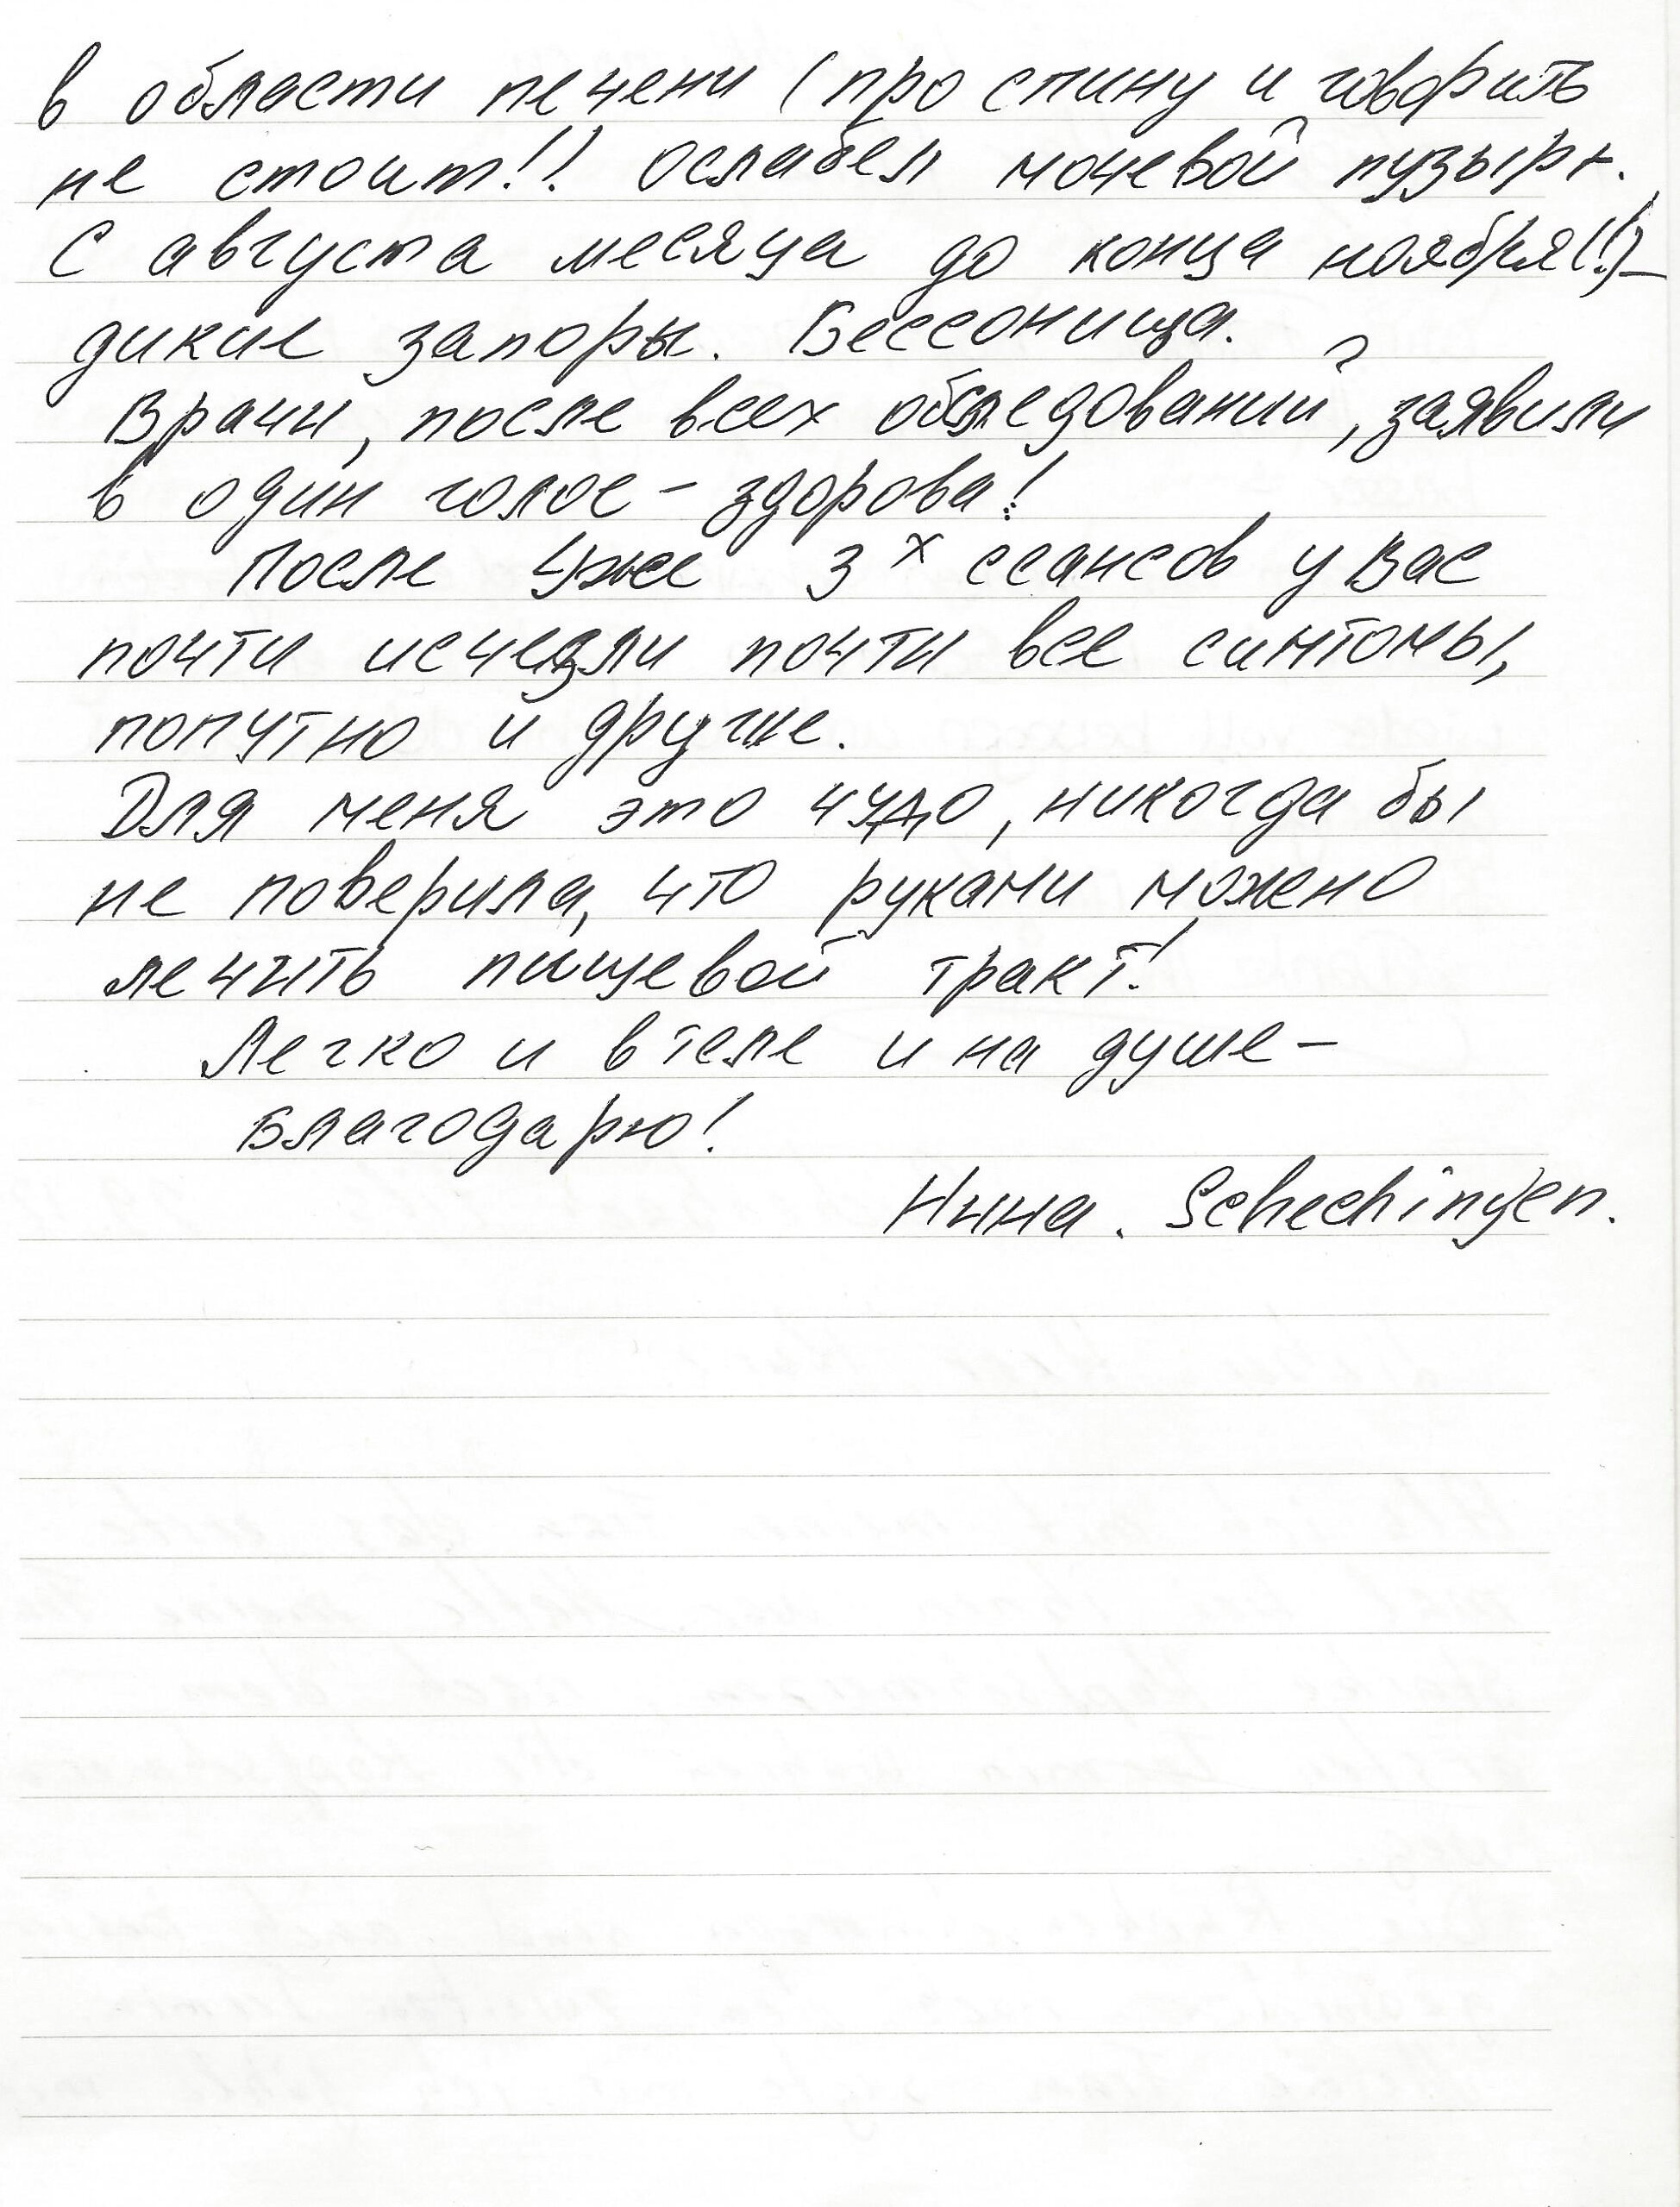 в области печени (про спину и говорить
не стоит!! ослабел мочевой пузырь.
С августа месяца до конца ноября(!)-
дикие запоры. Бессоница.
Врачи, после всех обследований, заявили
в один голос - здорова!
После уже 3х сеансов у Вас
почти исчезли почти все симтомы,
попутно и другие.
Для меня это чудо, никогда бы
не поверила, что руками можно
лечить пищевой тракт!
Легко и в теле и на душе -
Благодарю!
Нина. Schechingen.